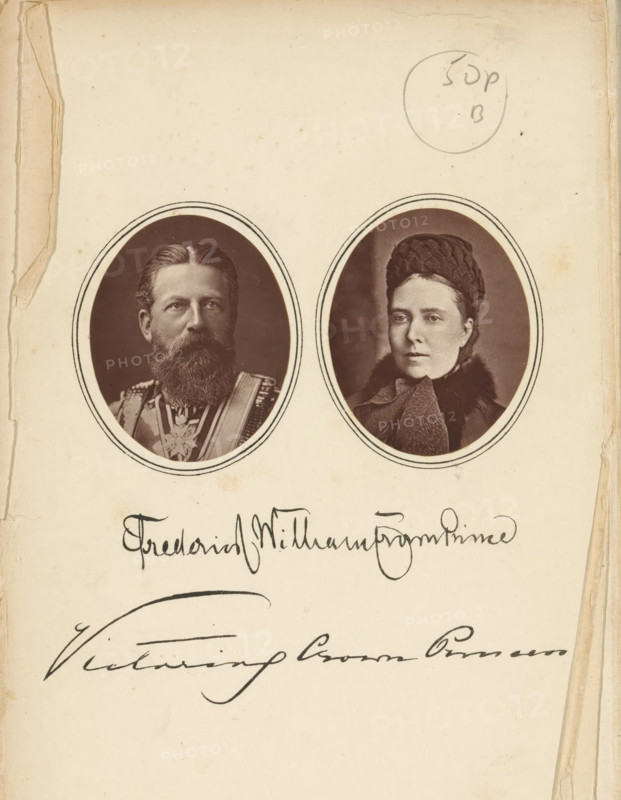 50p
B
Frederick William Crown Prince
Victoria Crown Princess
PHOTO12